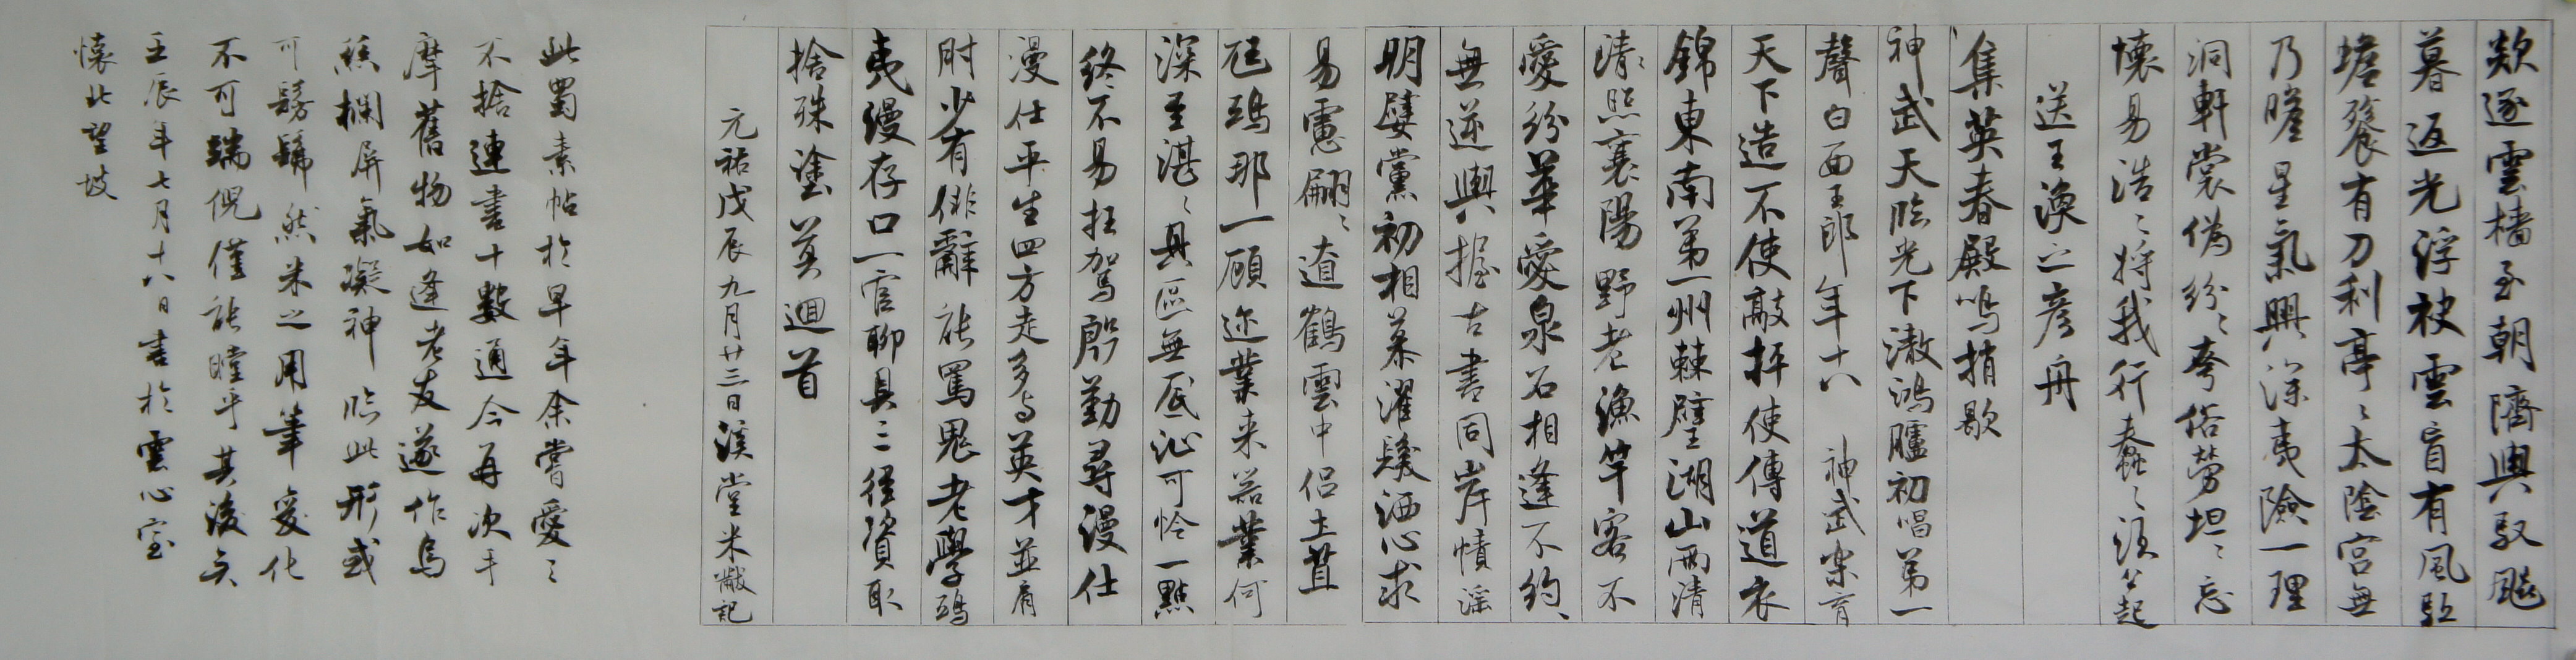 欻逐雲檣至朝隮與馭飈
暮返光浮袂雲盲有風驅
蟾餮有刀利亭〻太陰宮無
乃瞻星氣興深夷險一理
洞軒裳偽紛〻夸俗勞坦〻忘
懷易浩〻將我行蠢〻須公起
送王渙之彥舟
集英春殿鳴捎歇
神武天臨光下澈鴻臚初唱第一
聲白面王郎年十八 神武樂育
天下造不使敲抨使傳道衣
錦東南第一州棘璧湖山兩清
清照襄陽野老漁竿客不
愛紛華愛泉石相逢不約
無逆輿握古書同岸幘淫
明嬖黨初相慕濯髮洒心求
易慮翩〻遼鶴雲中侶土苴
尫鴟那一顧邇業来器業何
深至湛〻具區無底沚可怜一點
終不易枉駕殷勤尋漫仕
漫仕平生四方走多与英才並肩
肘少有俳辭能罵鬼老學鴟
夷漫存口一官聊具三徑資取
捨殊塗莫迴首
元祐戊辰九月廿三日溪堂米黻記
此蜀素帖於早年余嘗愛之
不捨連書十數通今再次手
摩舊物如逢老友遂作烏
絲欄屏氣凝神臨此形或
可髣髴然米之用筆變化
不可端倪僅能瞠乎其後矣
壬辰年七月十八日書於雲心室
懷北望坡